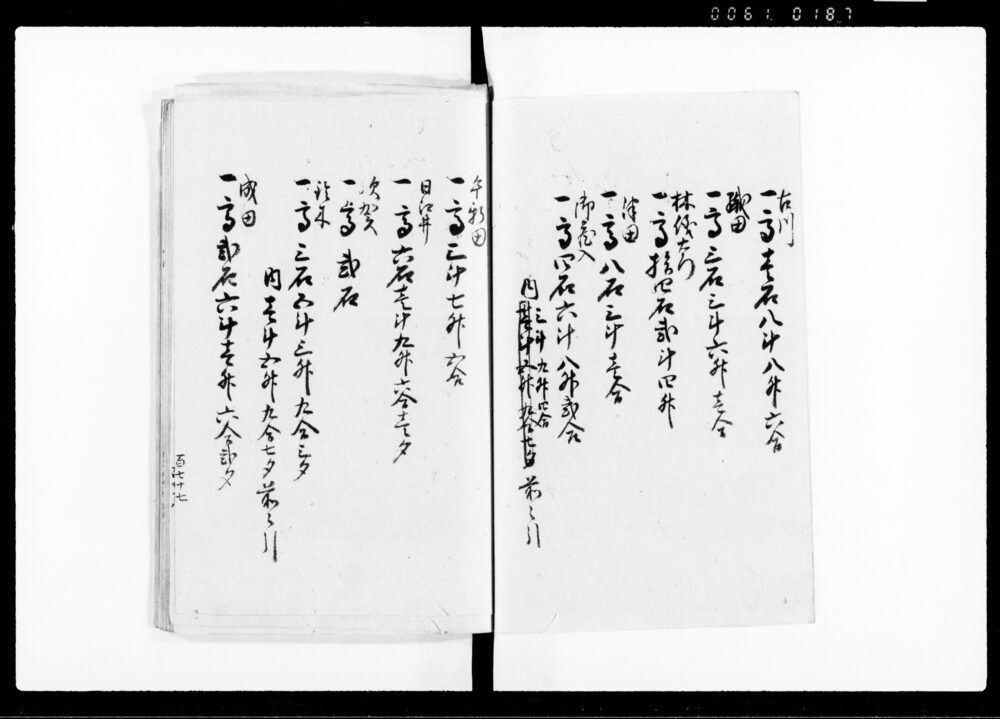 0061 0187
古川
一高壱石八斗八升六合
織田
一高三石三斗六升壱合
林儀左衛門
一高拾四石弐斗四升
津田
一高八石三斗壱合
御蔵入
一高四石六斗八升弐合
内三斗九升四合
前々引
午新田
一高三斗七升六合
日江井
一高六石壱斗九升六合壱夕
次賀
一高弐石
鈴木
一高三石五斗三升九合三夕
内壱斗五升九合七夕前々引
成田
一高弐石六斗壱升六合弐夕